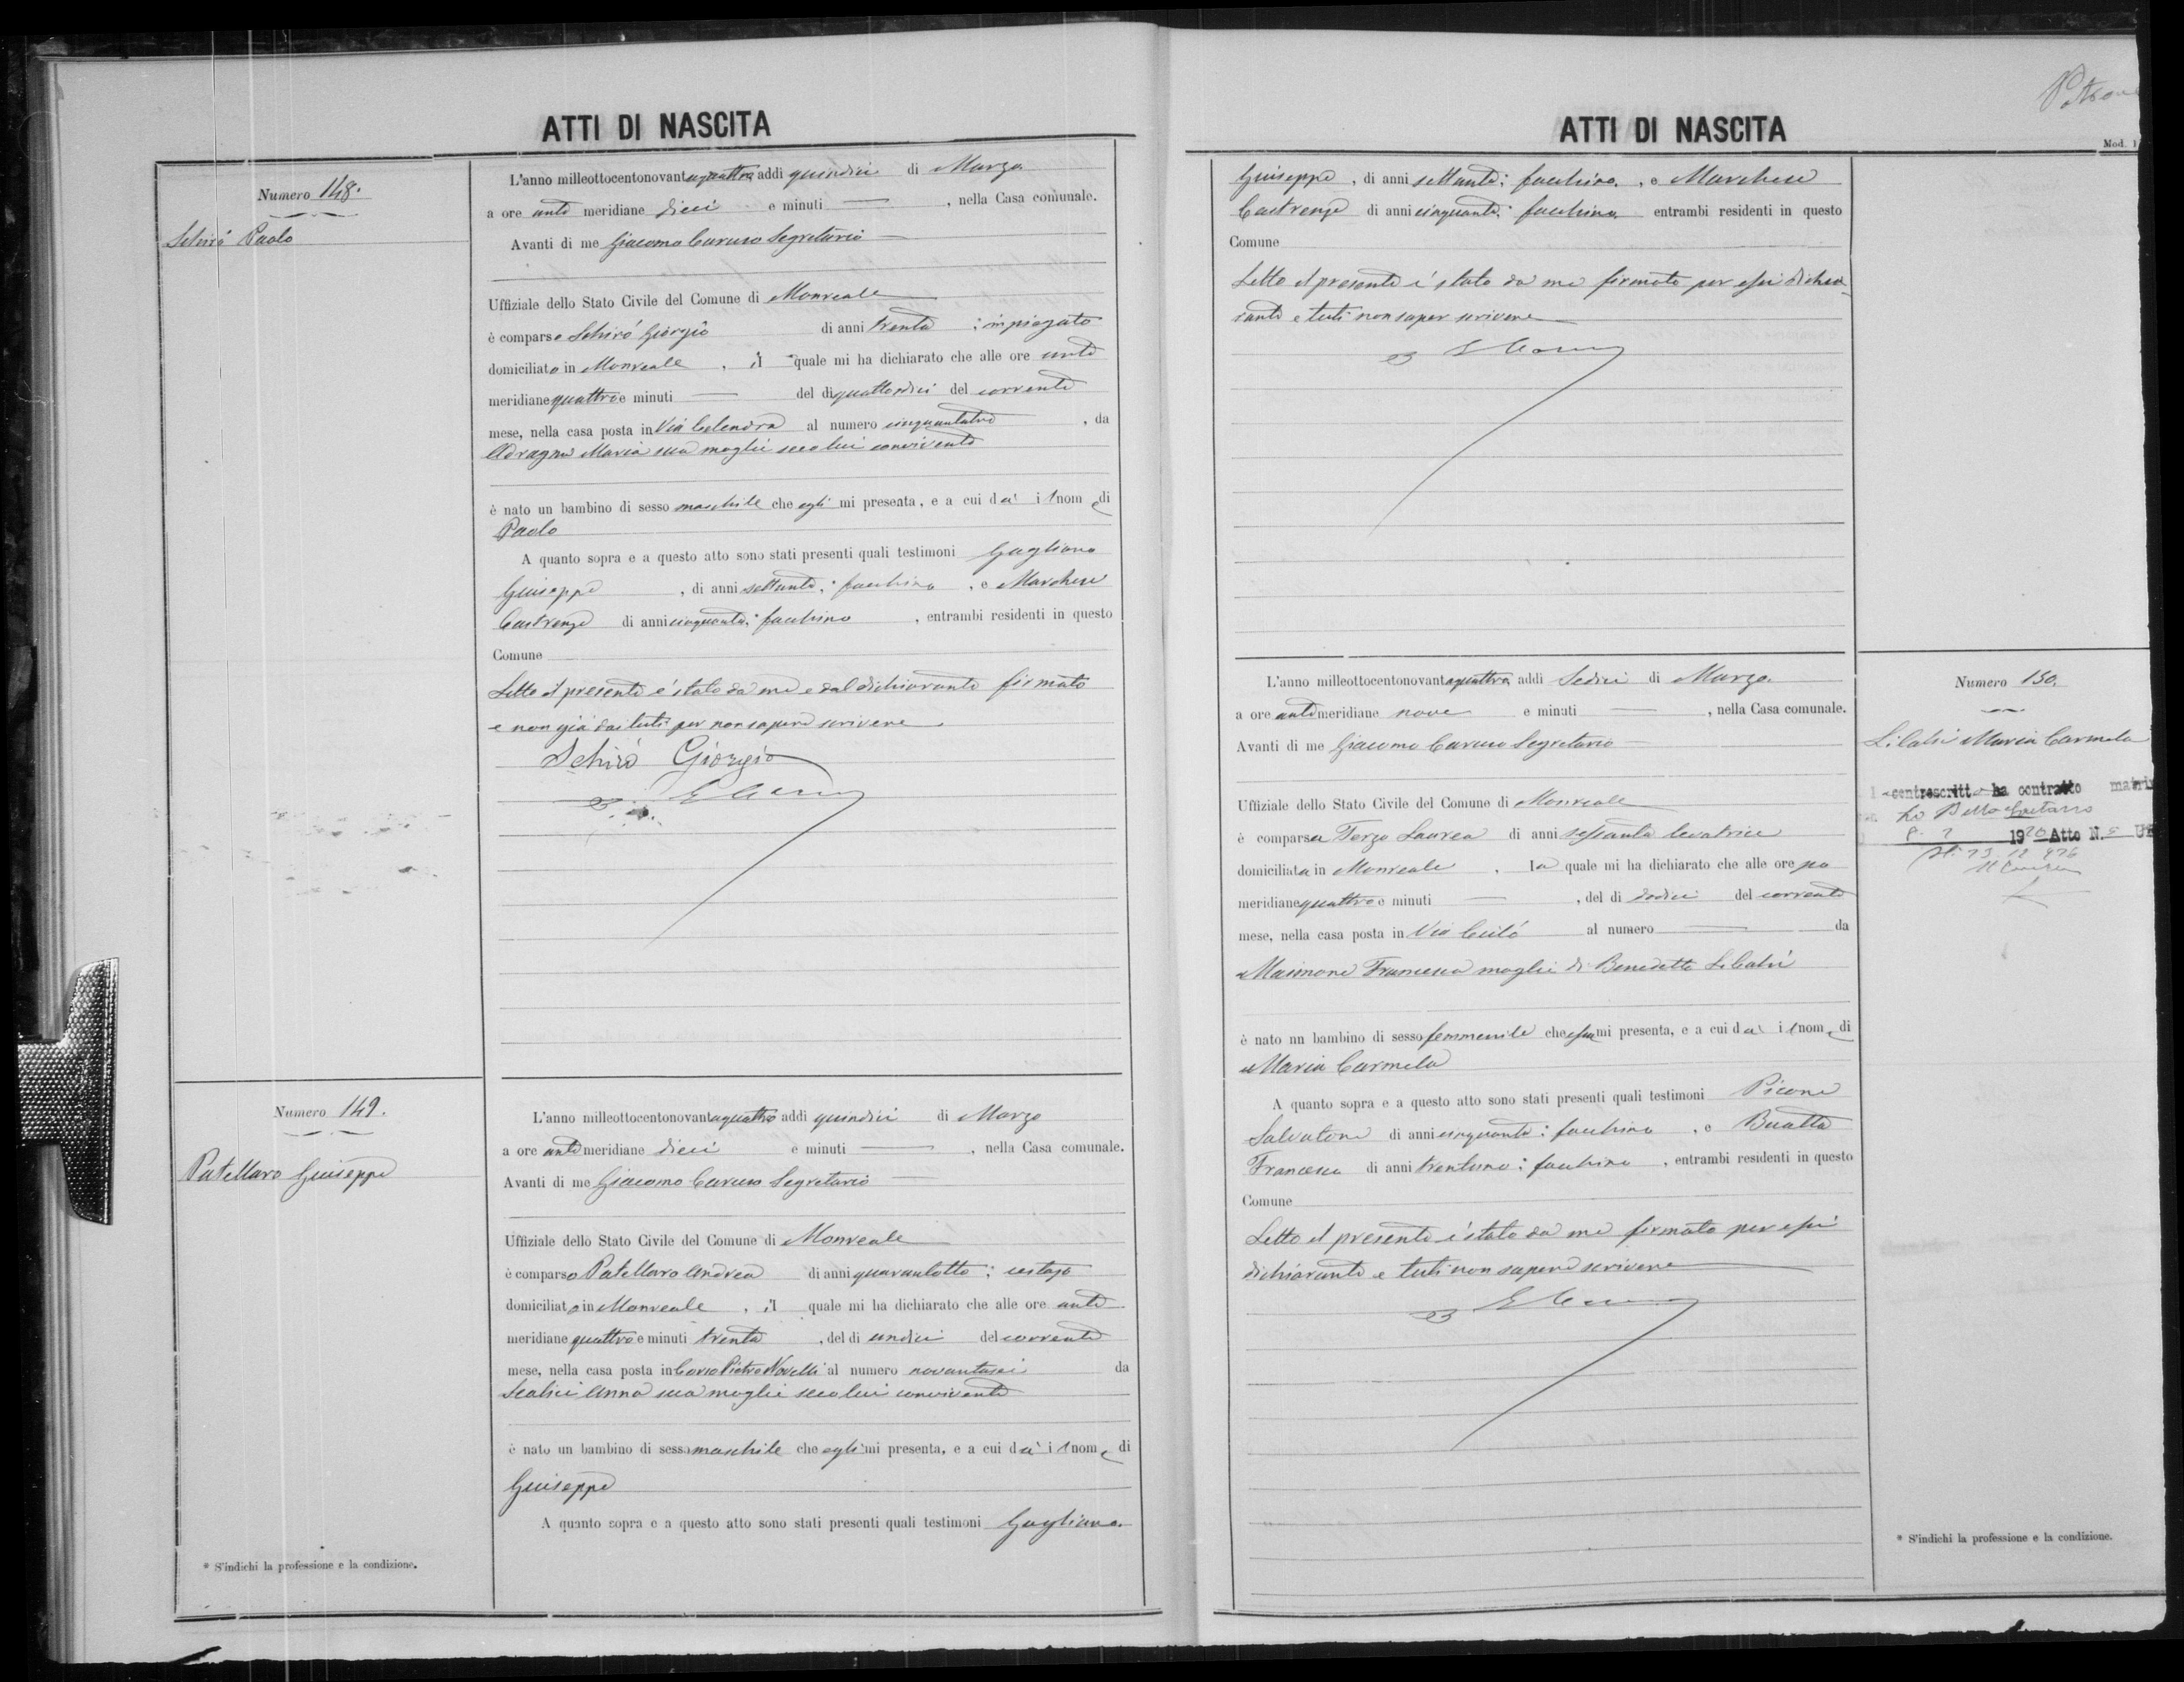 ATTI DI NASCITA
Numero 148.
Schirò Paolo
L'anno milleottocentonovantaquattro addi quindici di Marzo
a ore anti meridiane dieci e minuti — , nella Casa comunale.
Avanti di me Giacomo Caruso Segretario
Uffiziale dello Stato Civile del Comune di Monreale
è comparso Schirò Giorgio di anni trenta ; impiegato
domiciliato in Monreale , il quale mi ha dichiarato che alle ore anti
meridiane quattro e minuti — del di quattordici del corrente
mese, nella casa posta in Via Celendra al numero cinquantatre , da
Adragna Maria sua moglie seco lui convivente
è nato un bambino di sesso maschile che egli mi presenta, e a cui dà il nome di
Paolo
A quanto sopra e a questo atto sono stati presenti quali testimoni Gagliano
Giuseppe , di anni settanta; facchino , e Marchese
Castrenze di anni cinquanta; facchino , entrambi residenti in questo
Comune
Letto il presente è stato da me e dal dichiarante firmato
e non già dai testi per non sapere scrivere
Schirò Giorgio
Numero 149.
Patellaro Giuseppe
L'anno milleottocentonovantaquattro addi quindici di Marzo
a ore anti meridiane dieci e minuti — , nella Casa comunale.
Avanti di me Giacomo Caruso Segretario
Uffiziale dello Stato Civile del Comune di Monreale
è comparso Patellaro Andrea di anni quarantotto ;
domiciliato in Monreale , il quale mi ha dichiarato che alle ore anti
meridiane quattro e minuti trenta , del di undici del corrente
mese, nella casa posta in Corso Pietro Novelli al numero novantasei da
Scalici Anna sua moglie seco lui convivente
è nato un bambino di sesso maschile che egli mi presenta, e a cui dà il nome di
Giuseppe
A quanto sopra e a questo atto sono stati presenti quali testimoni Gagliano
* S'indichi la professione e la condizione.
ATTI DI NASCITA
Mod. 1
Giuseppe , di anni settanta; facchino , e Marchese
Castrenze di anni cinquanta; facchino entrambi residenti in questo
Comune
Letto il presente è stato da me firmato per essi dichia-
rante e testi non saper scrivere
L'anno milleottocentonovantaquattro addi Sedici di Marzo
a ore anti meridiane nove e minuti — , nella Casa comunale.
Avanti di me Giacomo Caruso Segretario
Uffiziale dello Stato Civile del Comune di Monreale
è comparsa Terzo Laurea di anni sessanta levatrice
domiciliata in Monreale , la quale mi ha dichiarato che alle ore po
meridiane quattro e minuti — , del di dodici del corrente
mese, nella casa posta in Via al numero — da
Maimone Francesca moglie di Benedetto Licalsi
è nato un bambino di sesso femmenile che essa mi presenta, e a cui dà il nome di
Maria Carmela
A quanto sopra e a questo atto sono stati presenti quali testimoni Picone
Salvatore di anni cinquanta; facchino , e Buatta
Francesco di anni trentuno; facchino , entrambi residenti in questo
Comune
Letto il presente è stato da me firmato per essi
dichiarante e testi non sapere scrivere
Numero 150.
Licalsi Maria Carmela
controscritta ha contratto matri
Lo Bello Gaetano
1920 Atto N.
* S'indichi la professione e la condizione.